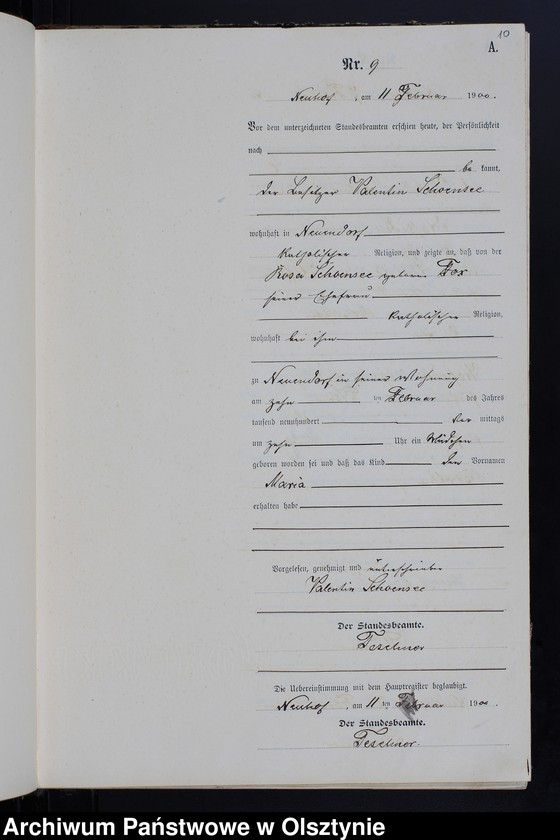 10
A.
Nr. 9
Neuhof, am 11 Februar 1900.
Vor dem unterzeichneten Standesbeamten erschien heute, der Persönlichkeit
nach
be kannt,
der Besitzer Valentin Schoensee
wohnhaft in Neuendorf
katholischer Religion, und zeigte an, daß von der
Rosa Schoensee geborene Fox
seiner Ehefrau
katholischer Religion,
wohnhaft bei ihm
zu Neuendorf in seiner Wohnung
am zehn ten Februar des Jahres
tausend neunhundert Vor mittags
um zehn Uhr ein Mädchen
geboren worden sei und daß das Kind den Vornamen
Maria
erhalten habe
Vorgelesen, genehmigt und unterschrieben
Valentin Schoensee
Der Standesbeamte.
Teschner
Die Uebereinstimmung mit dem Hauptregister beglaubigt.
Neuhof, am 11 ten Februar 1900.
Der Standesbeamte.
Teschner.
Archiwum Państwowe w Olsztynie